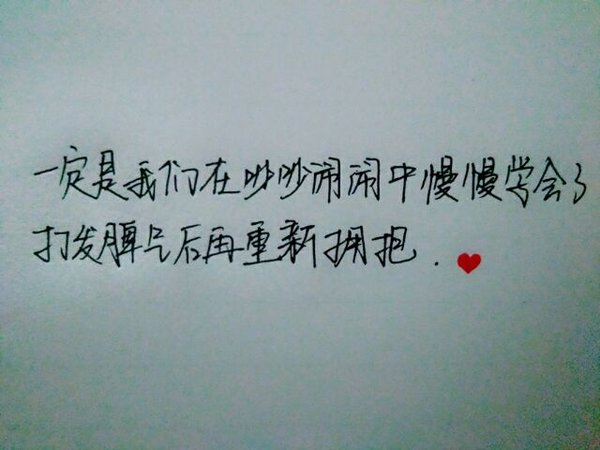 一定是我们在吵吵闹闹中慢慢学会了
打发脾气后再重新拥抱.